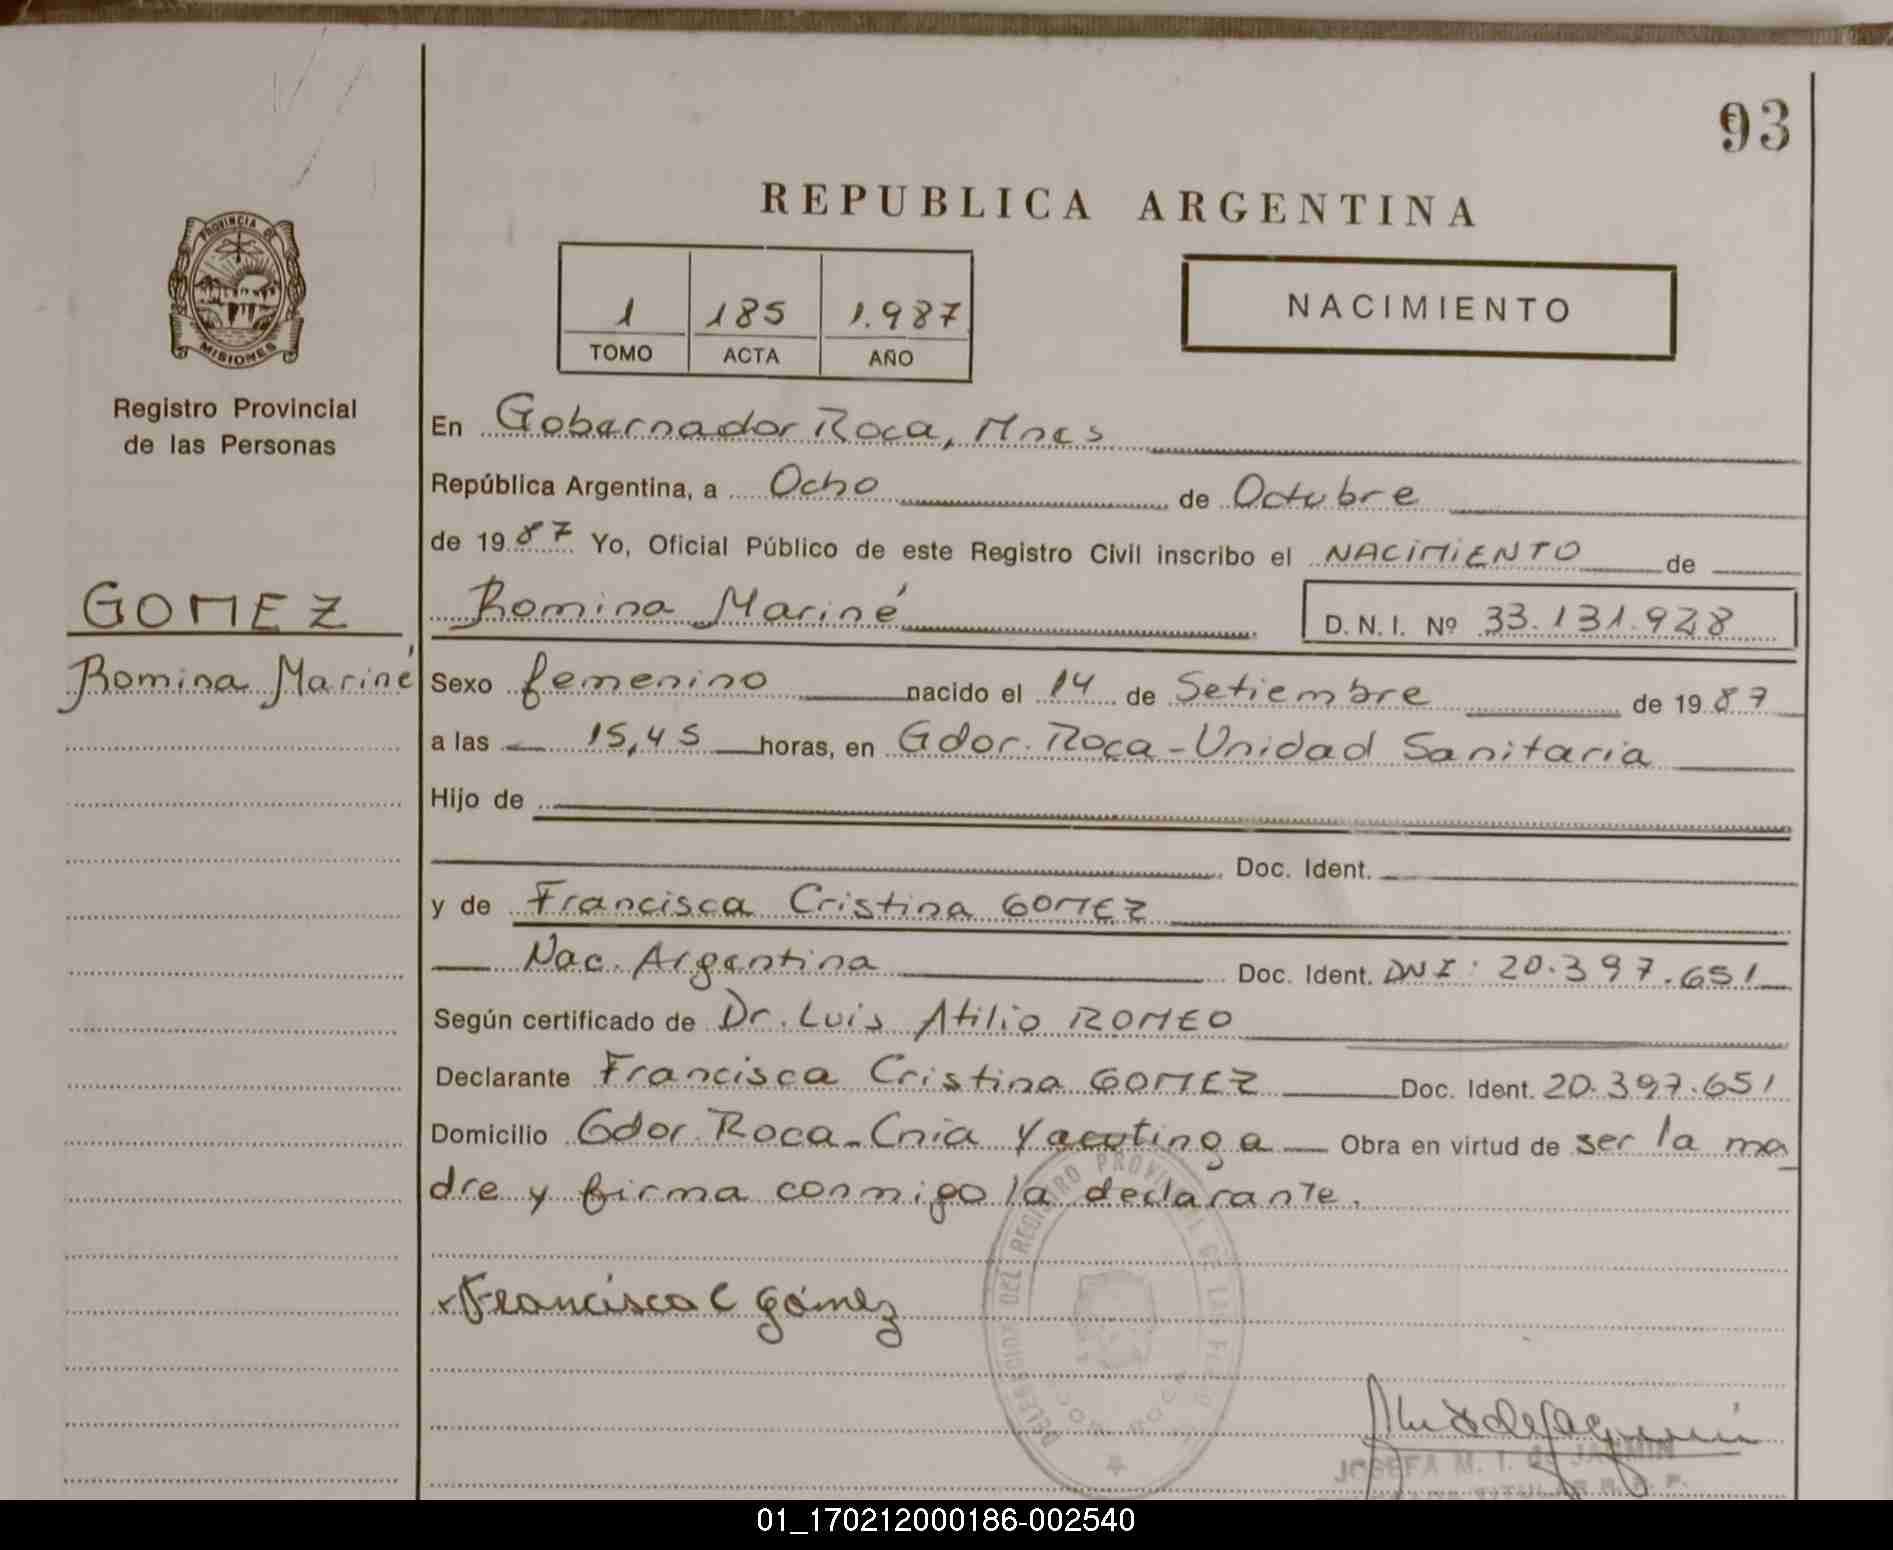 93
REPUBLICA ARGENTINA
PROVINCIA DE
MISIONES
1 185 1.987
TOMO ACTA AÑO
NACIMIENTO
Registro Provincial
de las Personas
GOMEZ
Romina Mariné
En Gobernador Roca, Mnes
República Argentina, a Ocho de Octubre
de 1987 Yo, Oficial Público de este Registro Civil inscribo el NACIMIENTO de
Romina Mariné D. N. I. Nº 33.131.928
Sexo femenino nacido el 14 de Setiembre de 1987
a las 15,45 horas, en Gdor. Roca - Unidad Sanitaria
Hijo de
Doc. Ident.
y de Francisca Cristina GOMEZ
Nac. Argentina Doc. Ident. DNI: 20.397.651
Según certificado de Dr. Luis Atilio ROMEO
Declarante Francisca Cristina GOMEZ Doc. Ident. 20.397.651
Domicilio Gdor. Roca - Cnia Yacutinga Obra en virtud de ser la ma
dre y firma conmigo la declarante.
Francisca C Gómez
DELEGACION DEL REGISTRO PROVINCIAL DE LAS
ROCA
JOSEFA M. I. de
01_170212000186-002540